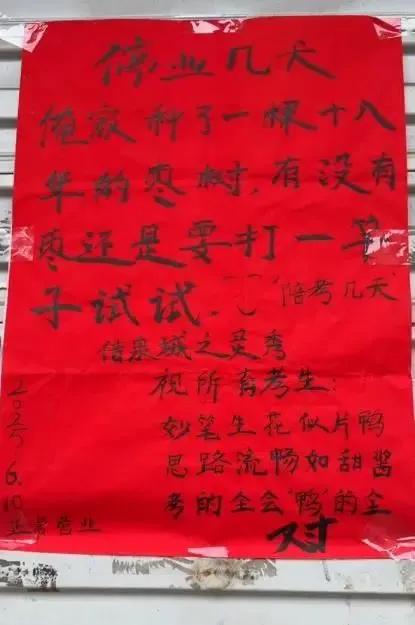 停业几天
俺家种了一棵十八
年的枣树,有没有
枣还是要打一竿
子试试.
陪考几天
结果城之灵秀
视所有考生:
妙笔生花似片鸭
思路流畅如甜酱
考的全会"鸭"的全
对
6.10
正常营业